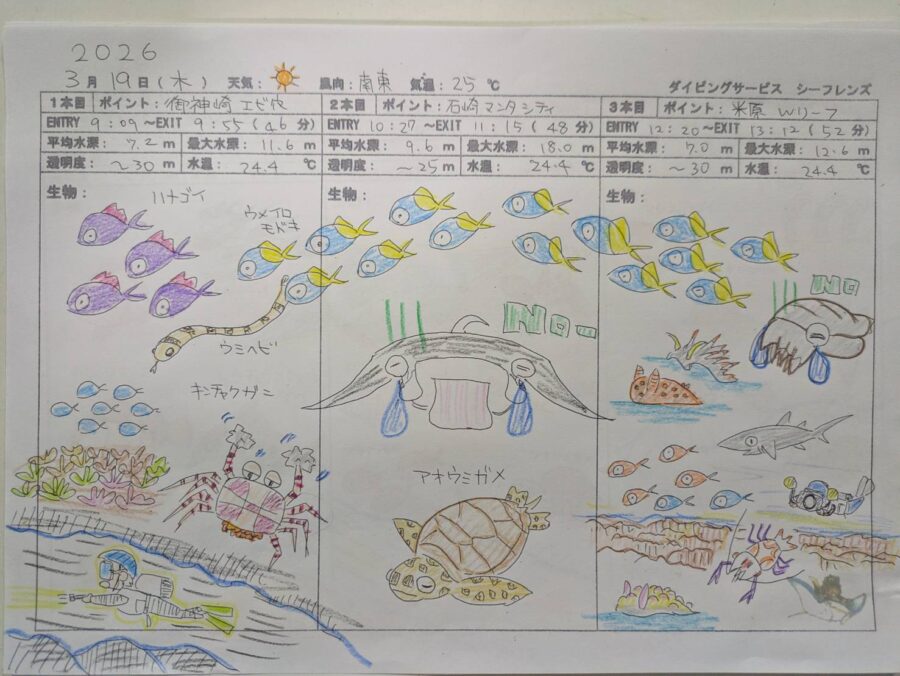 2026
3月19日(木) 天気: 風向:南東 気温:25℃
ダイビングサービス シーフレンズ
1本目 ポイント:御神崎 エビ穴
ENTRY 9:09~EXIT 9:55(46分)
平均水深: 7.2m 最大水深: 11.6m
透明度: ~30m 水温: 24.4℃
生物:
ハナゴイ
ウメイロ
モドキ
ウミヘビ
キンチャクガニ
2本目 ポイント:石崎マンタシティ
ENTRY 10:27~EXIT 11:15(48分)
平均水深: 9.6m 最大水深: 18.0m
透明度: ~25m 水温: 24.4℃
生物:
No...
アオウミガメ
3本目 ポイント:米原 Wリーフ
ENTRY 12:20~EXIT 13:12(52分)
平均水深: 7.0m 最大水深: 12.6m
透明度: ~30m 水温: 24.4℃
生物:
No